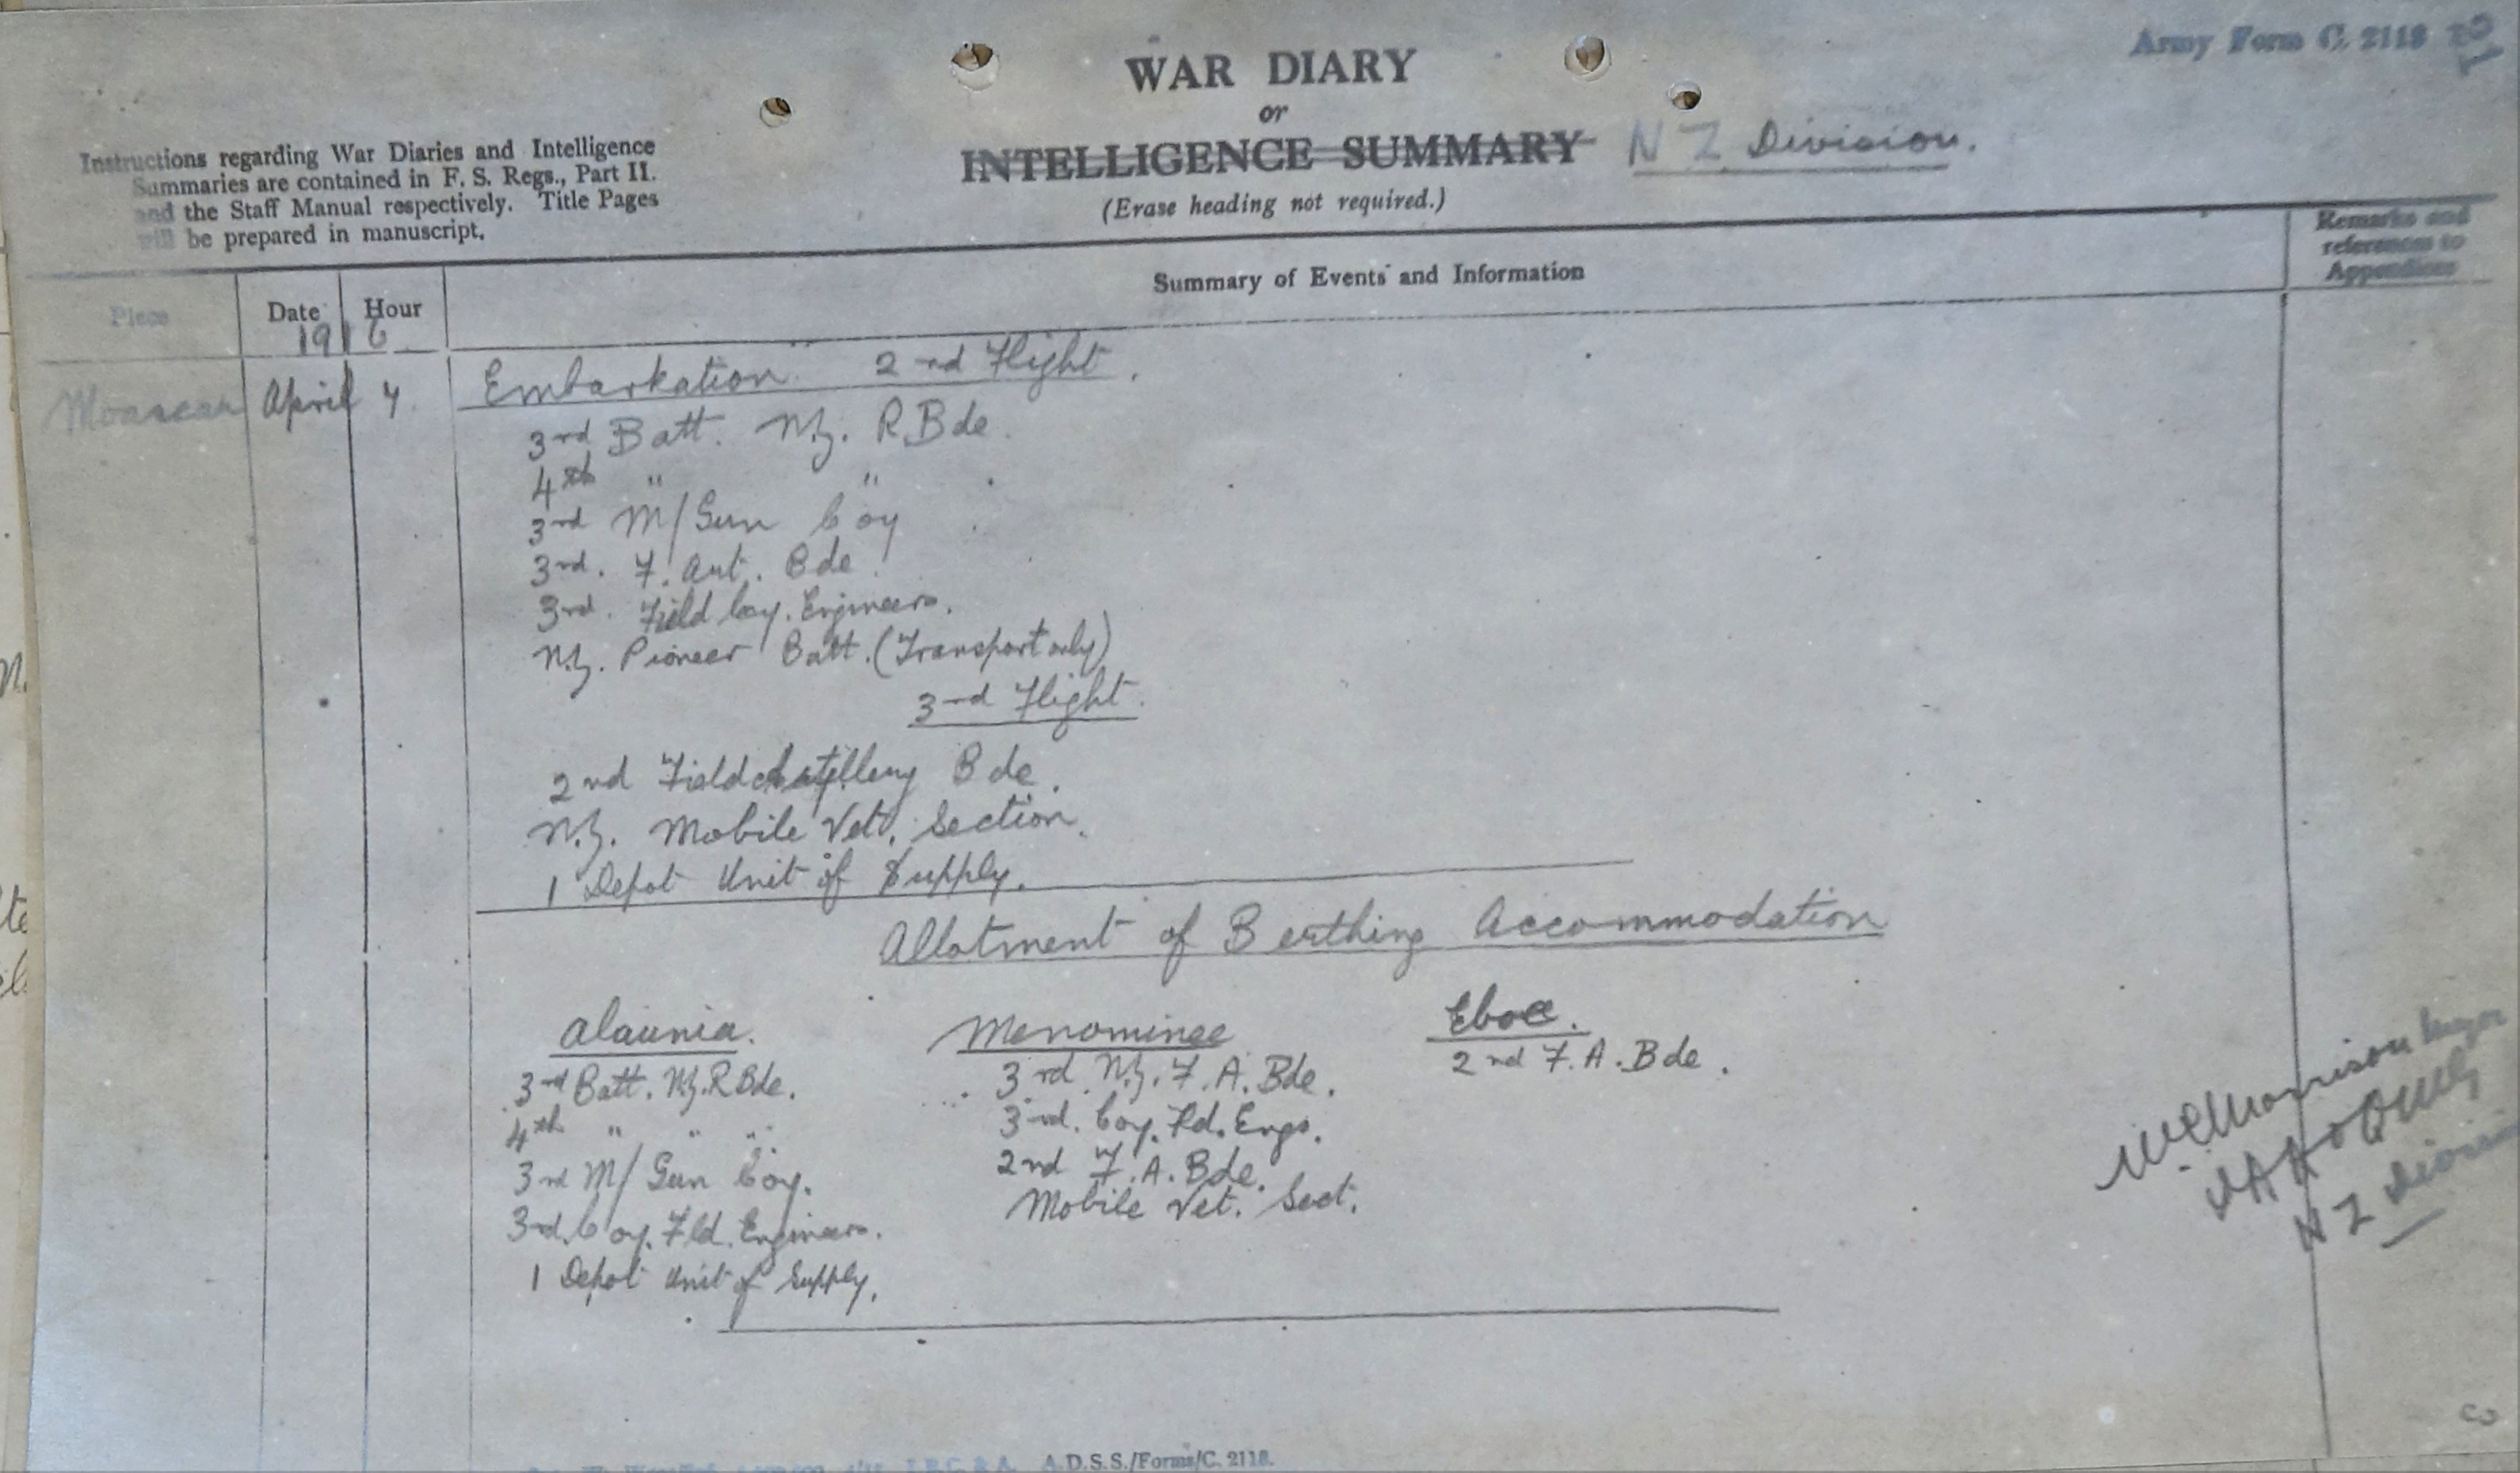 Army Form C. 2118
WAR DIARY
or
INTELLIGENCE SUMMARY N Z Division.
(Erase heading not required.)
Instructions regarding War Diaries and Intelligence
Summaries are contained in F. S. Regs., Part II.
and the Staff Manual respectively. Title Pages
will be prepared in manuscript.
Place
Date
Hour
Summary of Events and Information
Remarks and
references to
Appendices
1916
Moascar April 4
Embarkation 2nd Flight.
3rd Batt. N.Z. R.Bde.
4th " "
3rd M/Gun Coy
3rd. F. Art. Bde
3rd. Field Coy. Engineers.
N.Z. Pioneer Batt. (Transport only)
3rd Flight.
2nd Field Artillery Bde.
N.Z. Mobile Vet. Section.
1 Depot Unit of Supply.
Allotment of Berthing Accommodation
Alaunia.
3rd Batt. N.Z.R Bde.
4th " " "
3rd M/Gun Coy.
3rd. Coy. Fld. Engineers.
1 Depot Unit of Supply.
Menominee
3rd N.Z. F.A. Bde.
3rd. Coy. Fd. Engs.
2nd F.A. Bde.
Mobile Vet. Sect.
Eboe.
2nd F.A. Bde.
Morrison Major
N Z Division
A.D.S.S./Forms/C. 2118.